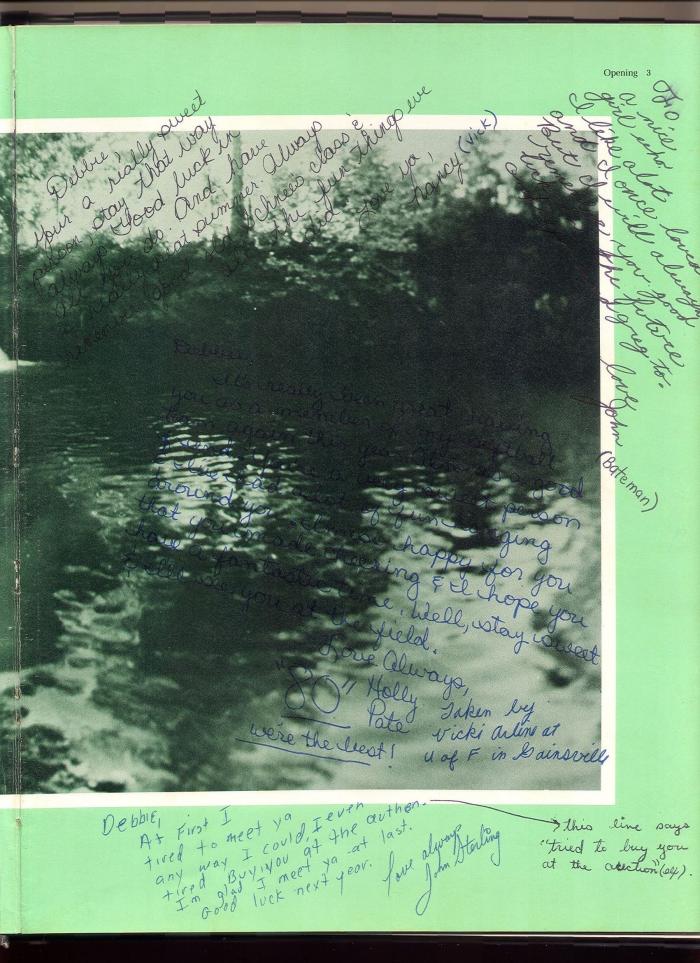 Opening 3
Debbie,
Your a really sweet
person, stay that way
always. Good luck in
all you do. And have
a really neat summer. Always
remember class &
the fun things we
did Love ya,
Nancy (Vick)
To
a nice
girl who
I like alot
and once loved
But I will always
as you good
the future
I greg to.
love
John
(Bateman)
Debbie,
It's really been great having
you as a member of my softball
team again this year. You're a good
friend & a sweet person
I've had a lot of fun hanging
around you. I'm so happy for you
that you made cheering & I hope you
have a fantastic time. Well, stay sweet
& I'll see you at the field.
Love Always,
"80" Holly
Pate
we're the best!
Taken by
Vicki Arline at
U of F in Gainsville
Debbie,
At First I
tired to meet ya
any way I could, I even
tired Buy, you at the author.
I'm glad I meet ya at last.
Good luck next year.
Love always
John Sterling
this line says
"tried to buy you
at the auction"